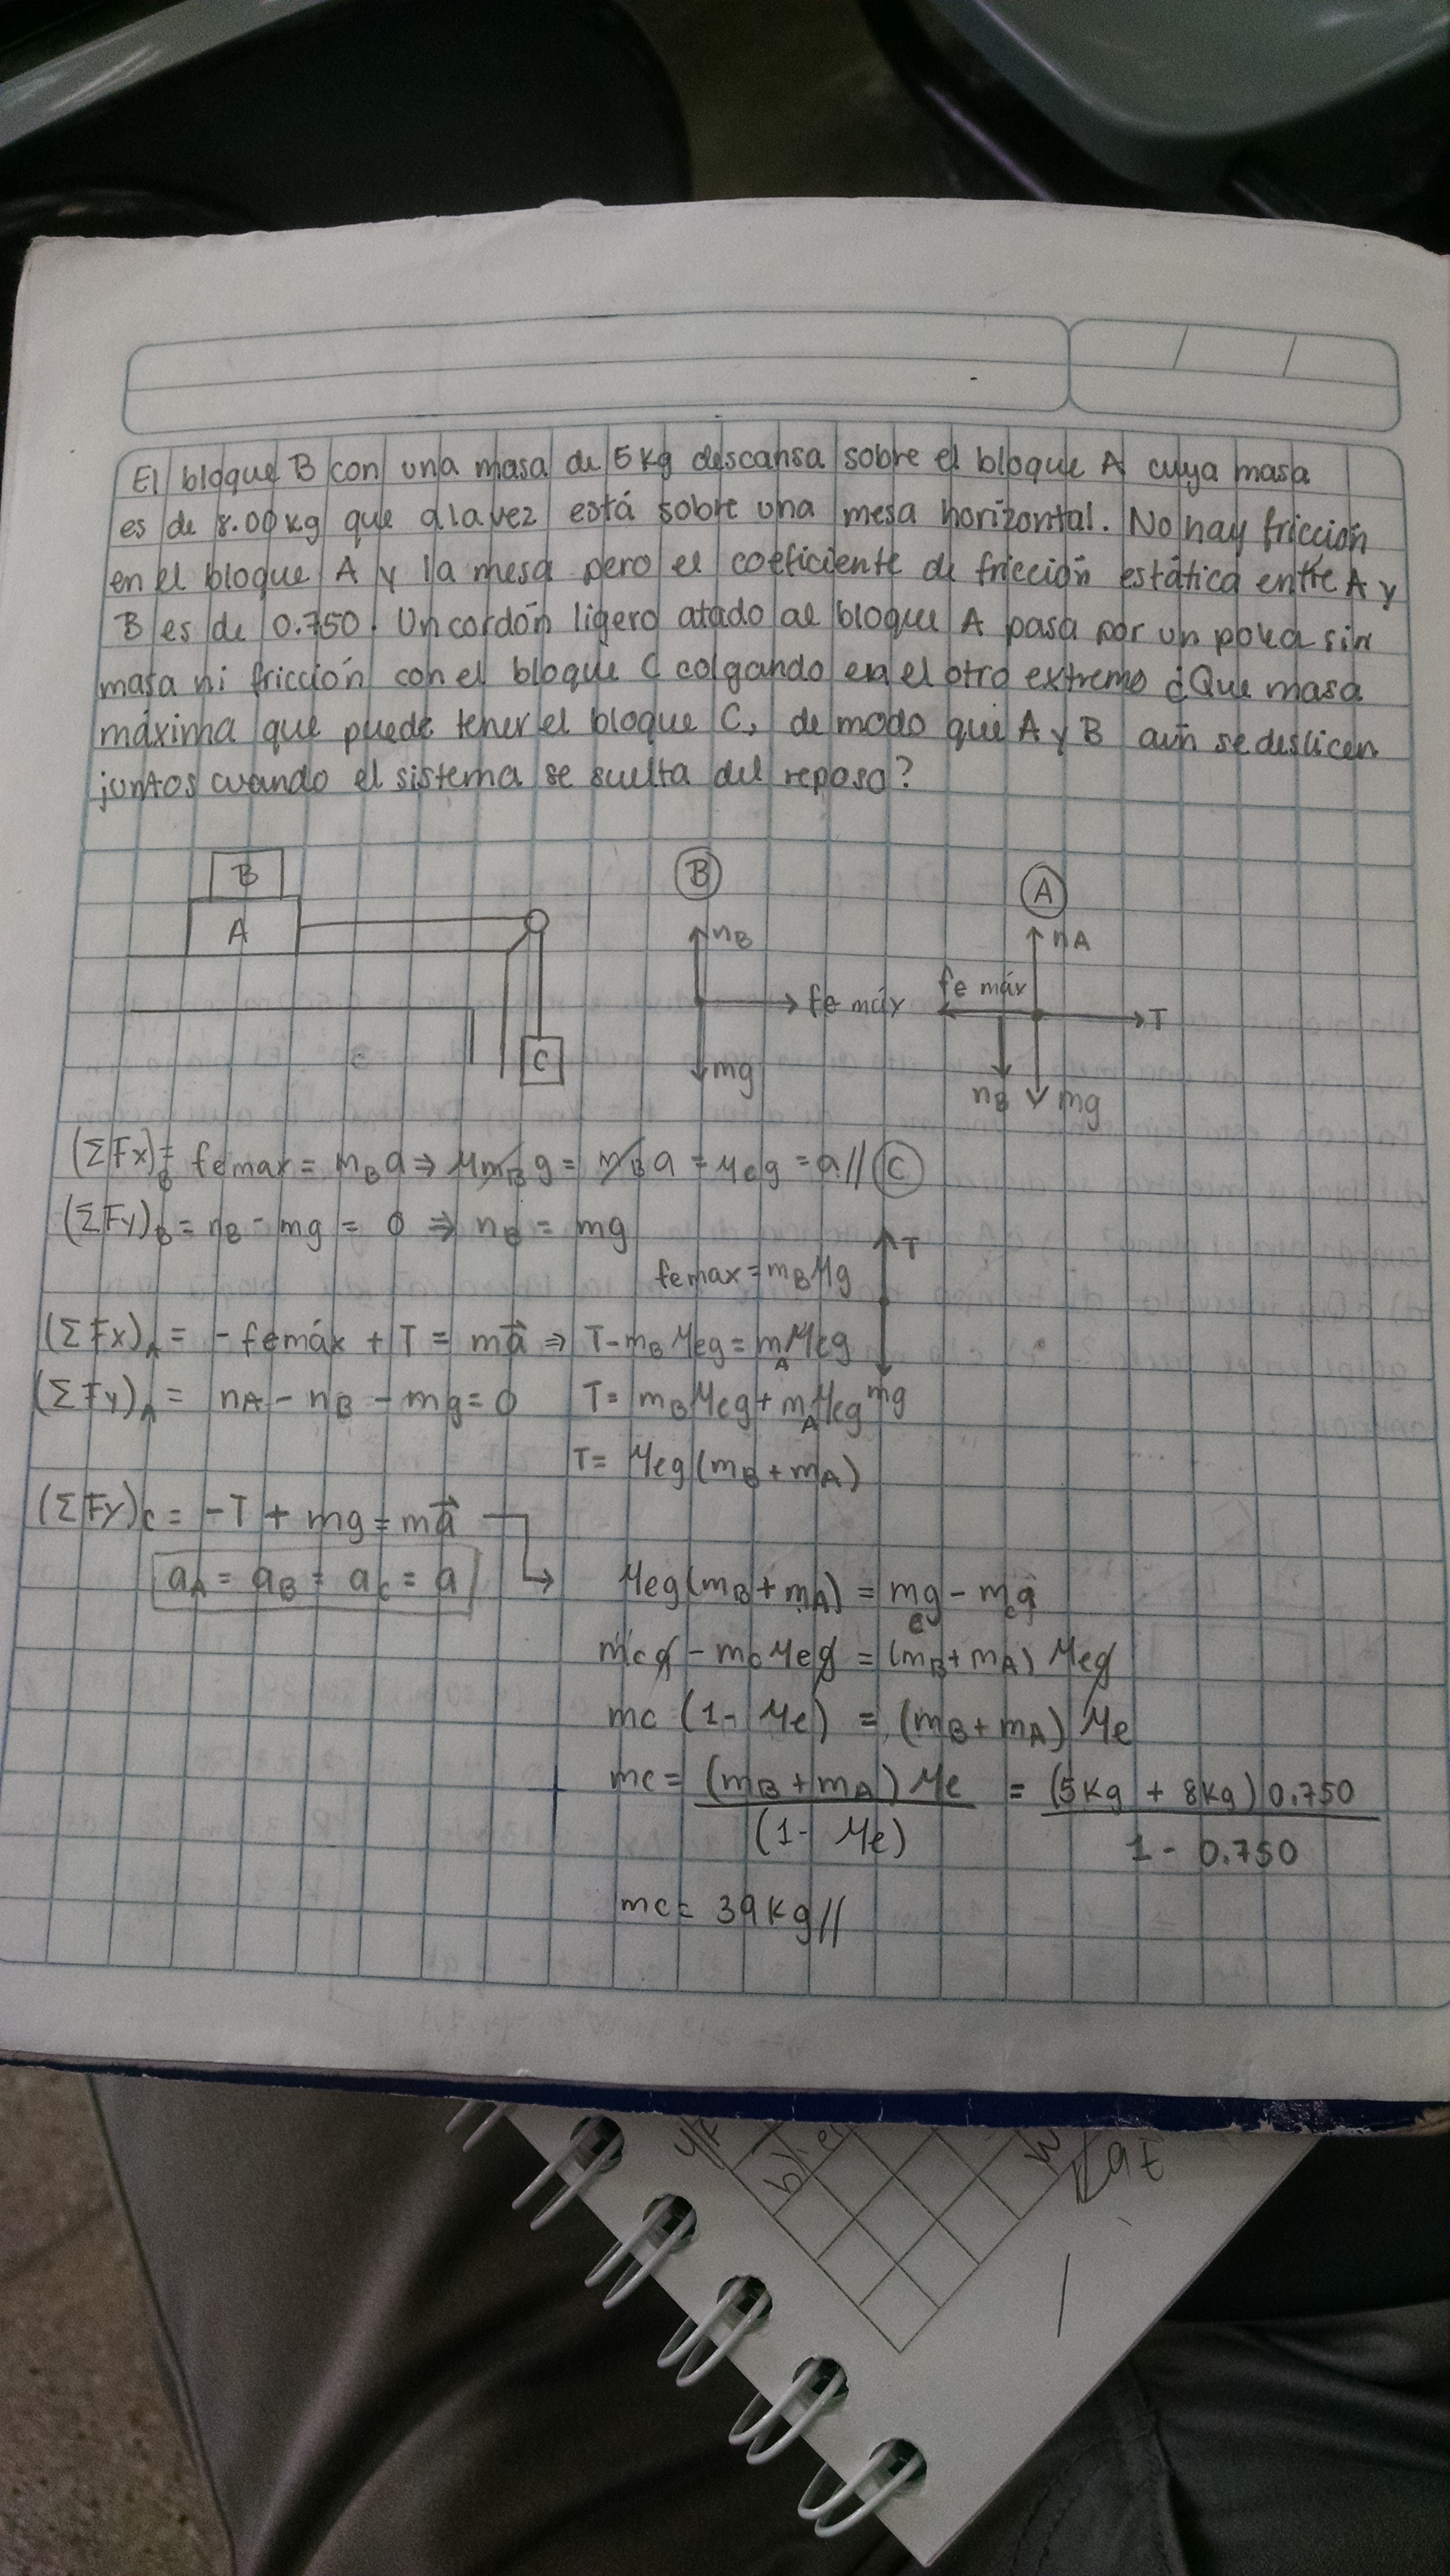 El bloque B con una masa de 5 kg descansa sobre el bloque A cuya masa
es de 8.00 kg que a la vez está sobre una mesa horizontal. No hay fricción
en el bloque A y la mesa pero el coeficiente de fricción estática entre A y
B es de 0.750. Un cordón ligero atado al bloque A pasa por un polea sin
masa ni fricción con el bloque C colgando en el otro extremo ¿Que masa
máxima que puede tener el bloque C, de modo que A y B aún se deslicen
juntos cuando el sistema se suelta del reposo?
B
A
C
B
nB
fe máx
mg
A
nA
fe máx
T
nB
mg
(ΣFx)B = femax = mB a ⇒ μmB g = mB a = μeg = a//
C
(ΣFy)B = nB - mg = 0 ⇒ nB = mg
T
femax = mB μg
(ΣFx)A = - femáx + T = ma⃗ ⇒ T - mB μeg = mA μeg
(ΣFy)A = nA - nB - mg = 0
T = mB μeg + mA μeg
mg
T = μeg (mB + mA)
(ΣFy)c = -T + mg = ma⃗
aA = aB = ac = a
μeg(mB + mA) = mcg - mca
mcg - mc μeg = (mB + mA) μeg
mc (1 - μe) = (mB + mA) μe
mc = (mB + mA) μe / (1 - μe) = (5kg + 8kg) 0.750 / 1 - 0.750
mc = 39 kg//